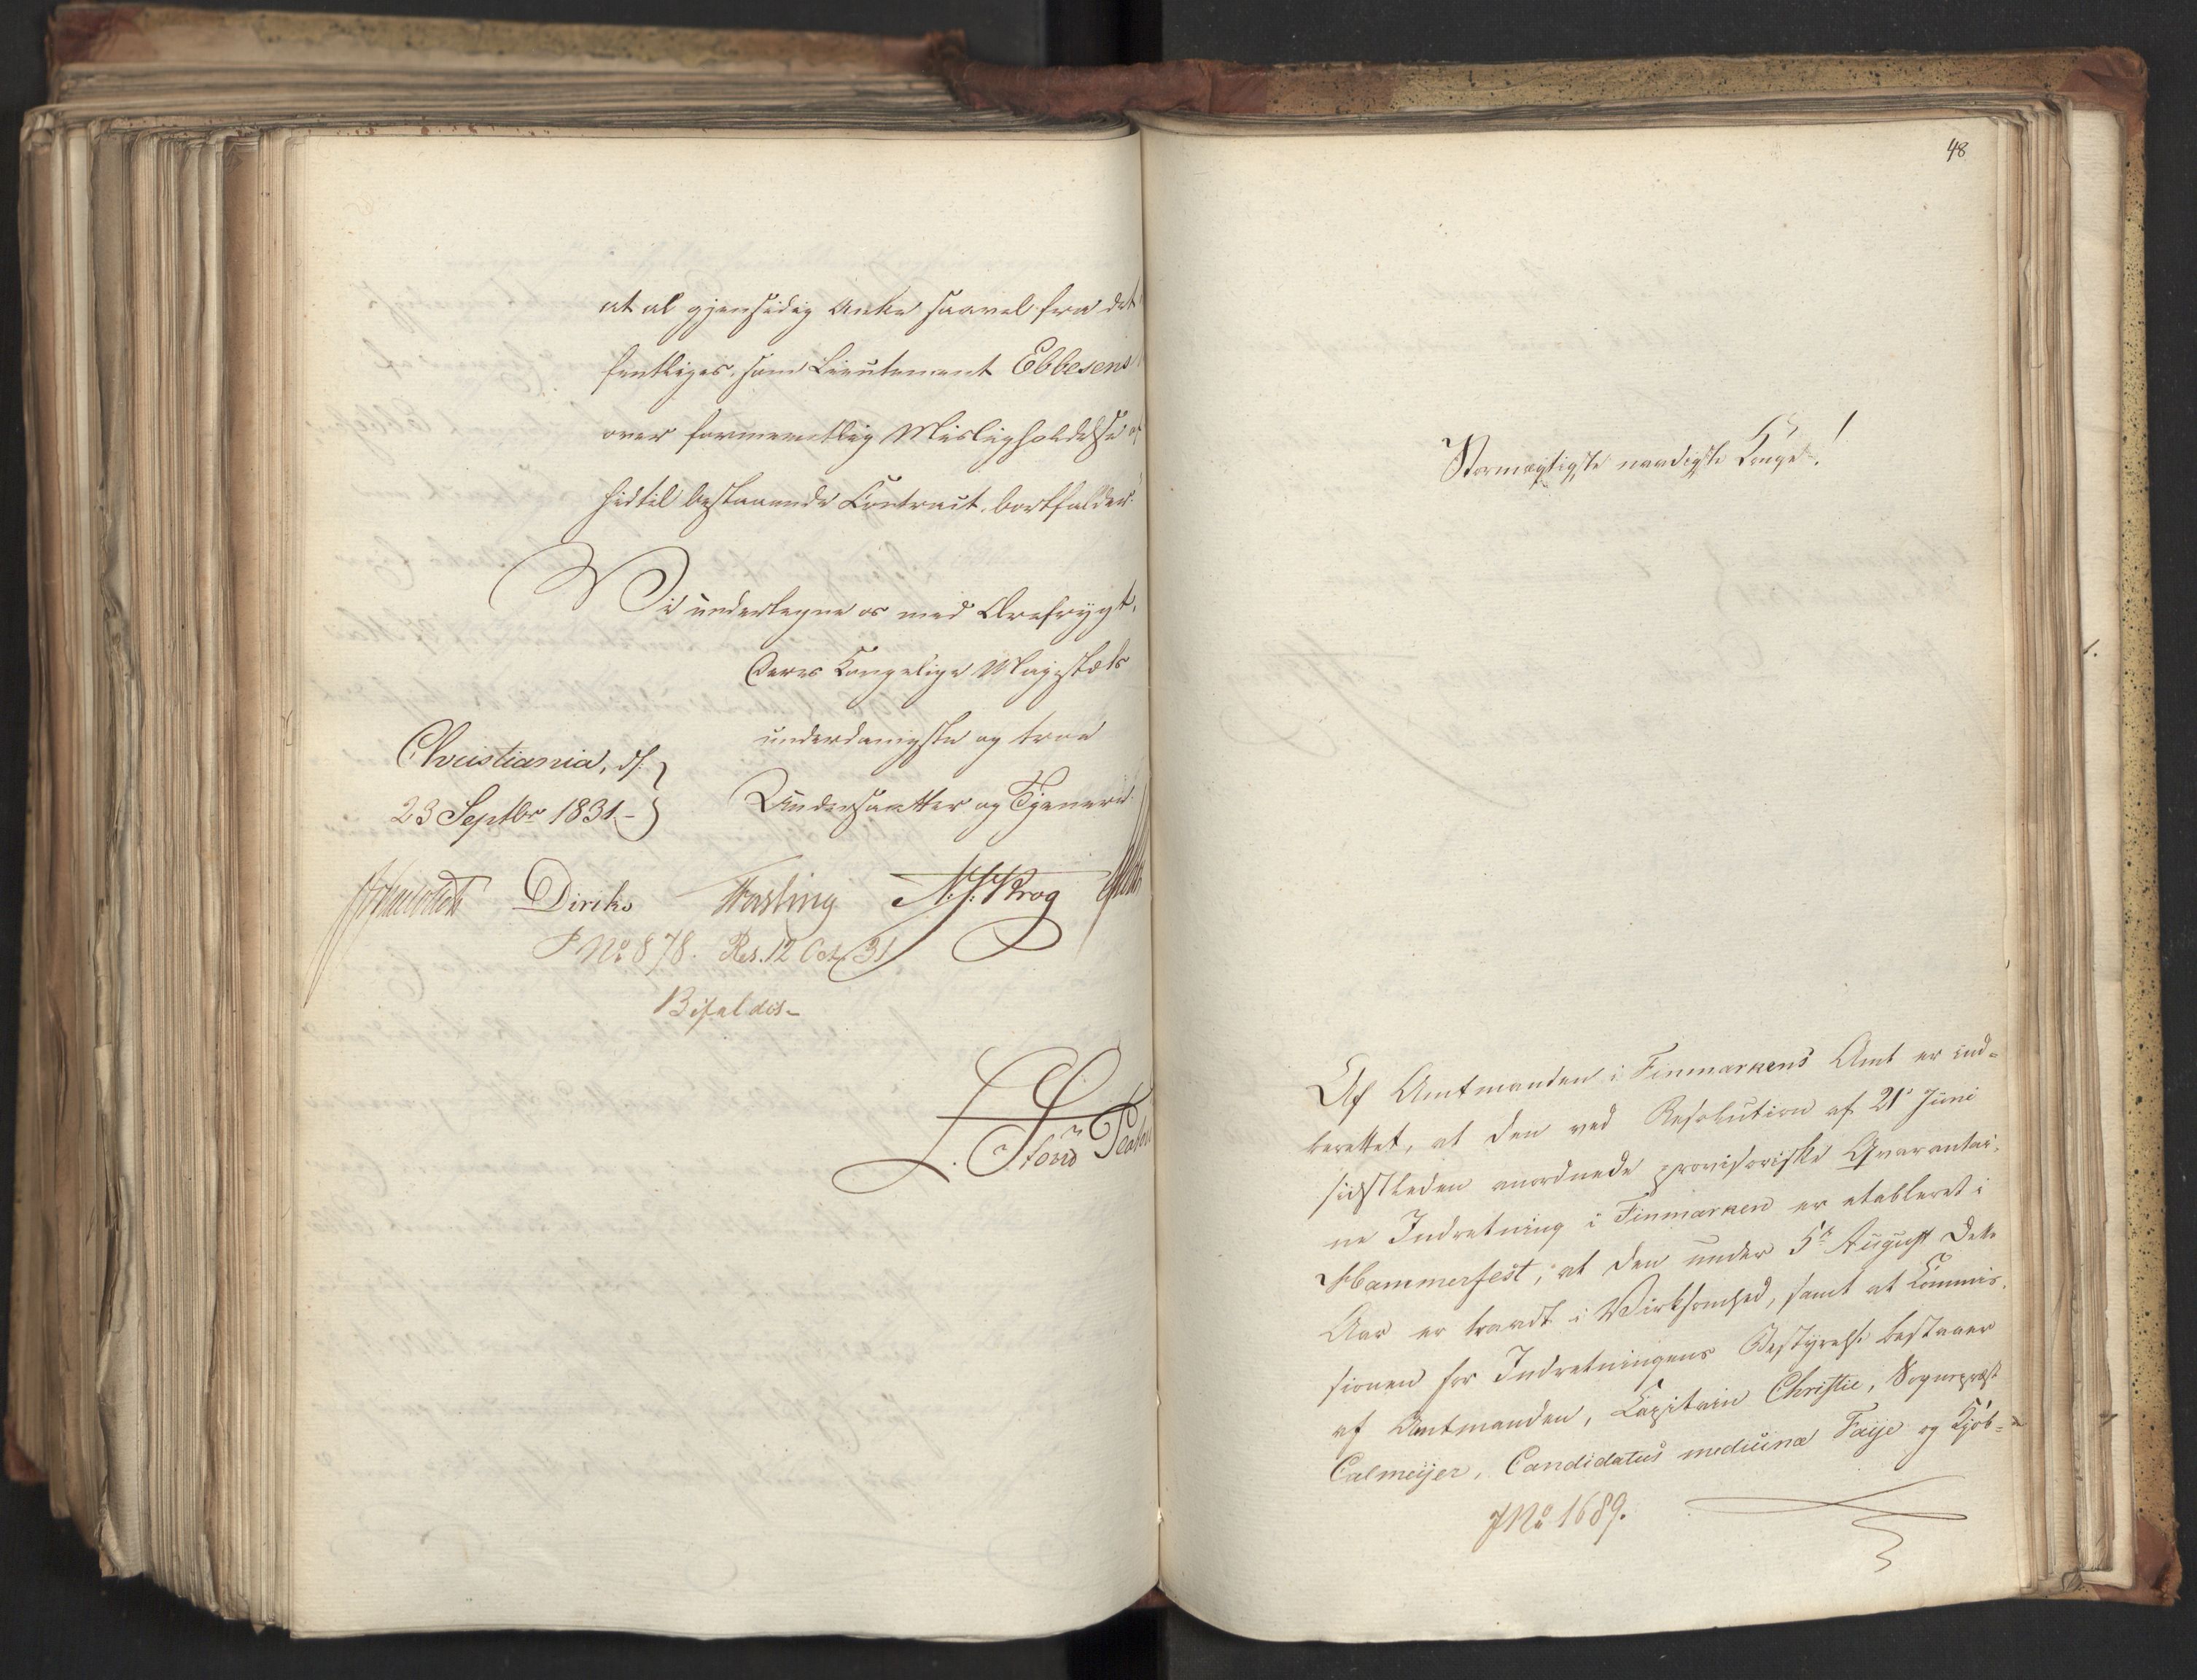 at al gjensidig Anke saavel fra det
fentliges, som Lieutenant Ebbesens
over formeentlig Misligholdelse af
hidtil bestaaende Contract, bortfalder.
Vi undertegne os med Ærefrygt,
Deres Kongelige Majestæts
underdanigste og troe
Undersaatter og Tjenere
Christiania, d.
23 Septbr 1831.
Diriks Fasting N. J. Krog
J No 878. Res. 12 Oct 31
Bifaldes
48
Stormægtigste naadigste Konge!
Af Amtmanden i Finmarkens Amt er ind-
berettet, at den ved Resolution af 21 Juni
sidstleden anordnede provisoriske Qvarantai-
ne Indretning i Finmarken er etableret i
Hammerfest, at den under 5te August dette
Aar er traadt i Virksomhed, samt at Commis-
sionen for Indretningens Bestyrelse bestaaer
af Amtmanden, Capitain Christie, Sognepræst
Calmeijer, Candidatus medicinæ Faije og Kjøb-
J No 1689.